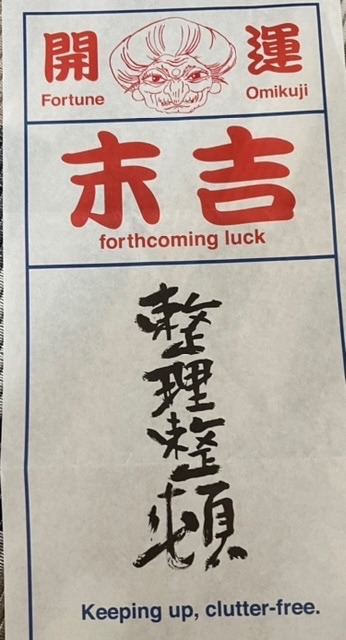 開 運
Fortune Omikuji
末吉
forthcoming luck
整理整頓
Keeping up, clutter-free.